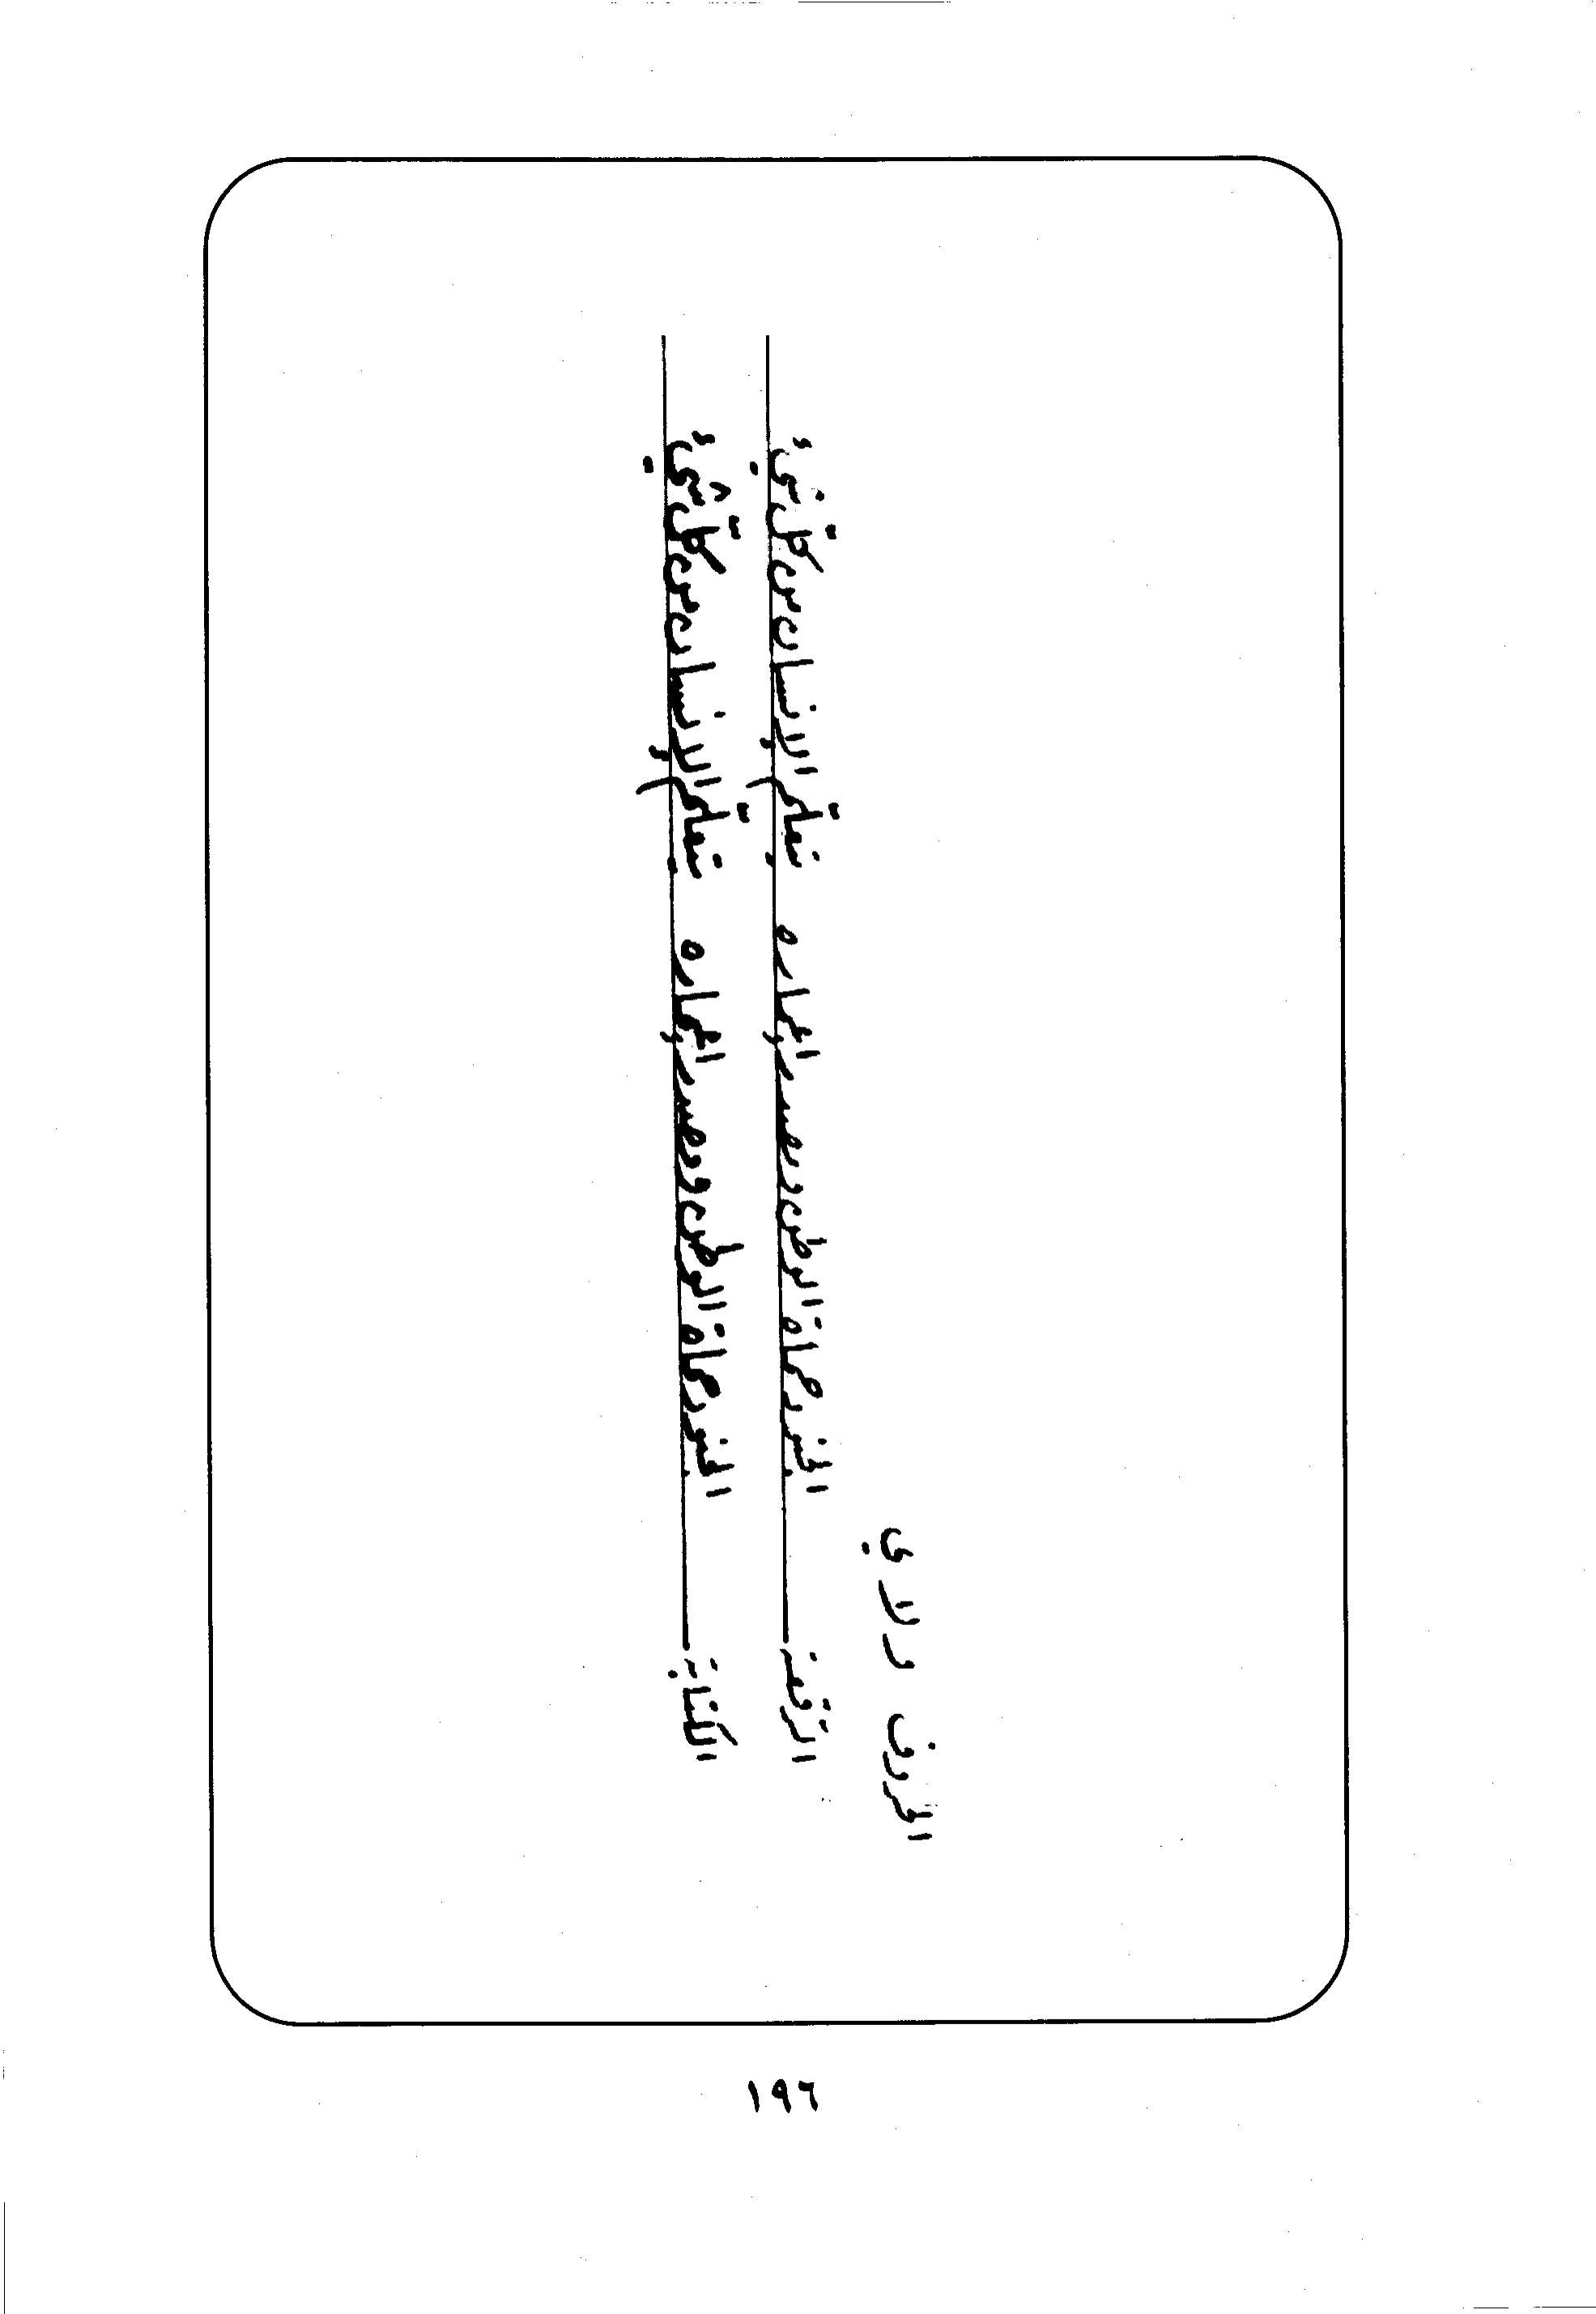 الحروف و لا ي
الرقعة الجنود حماة الوطن ومصدر إعماره يتعلّم الإنسان من كلّ شيء
الكتابة الجنود حماة الوطن ومصدر إعماره يتعلّم الإنسان من كلّ شيء
١٩٦